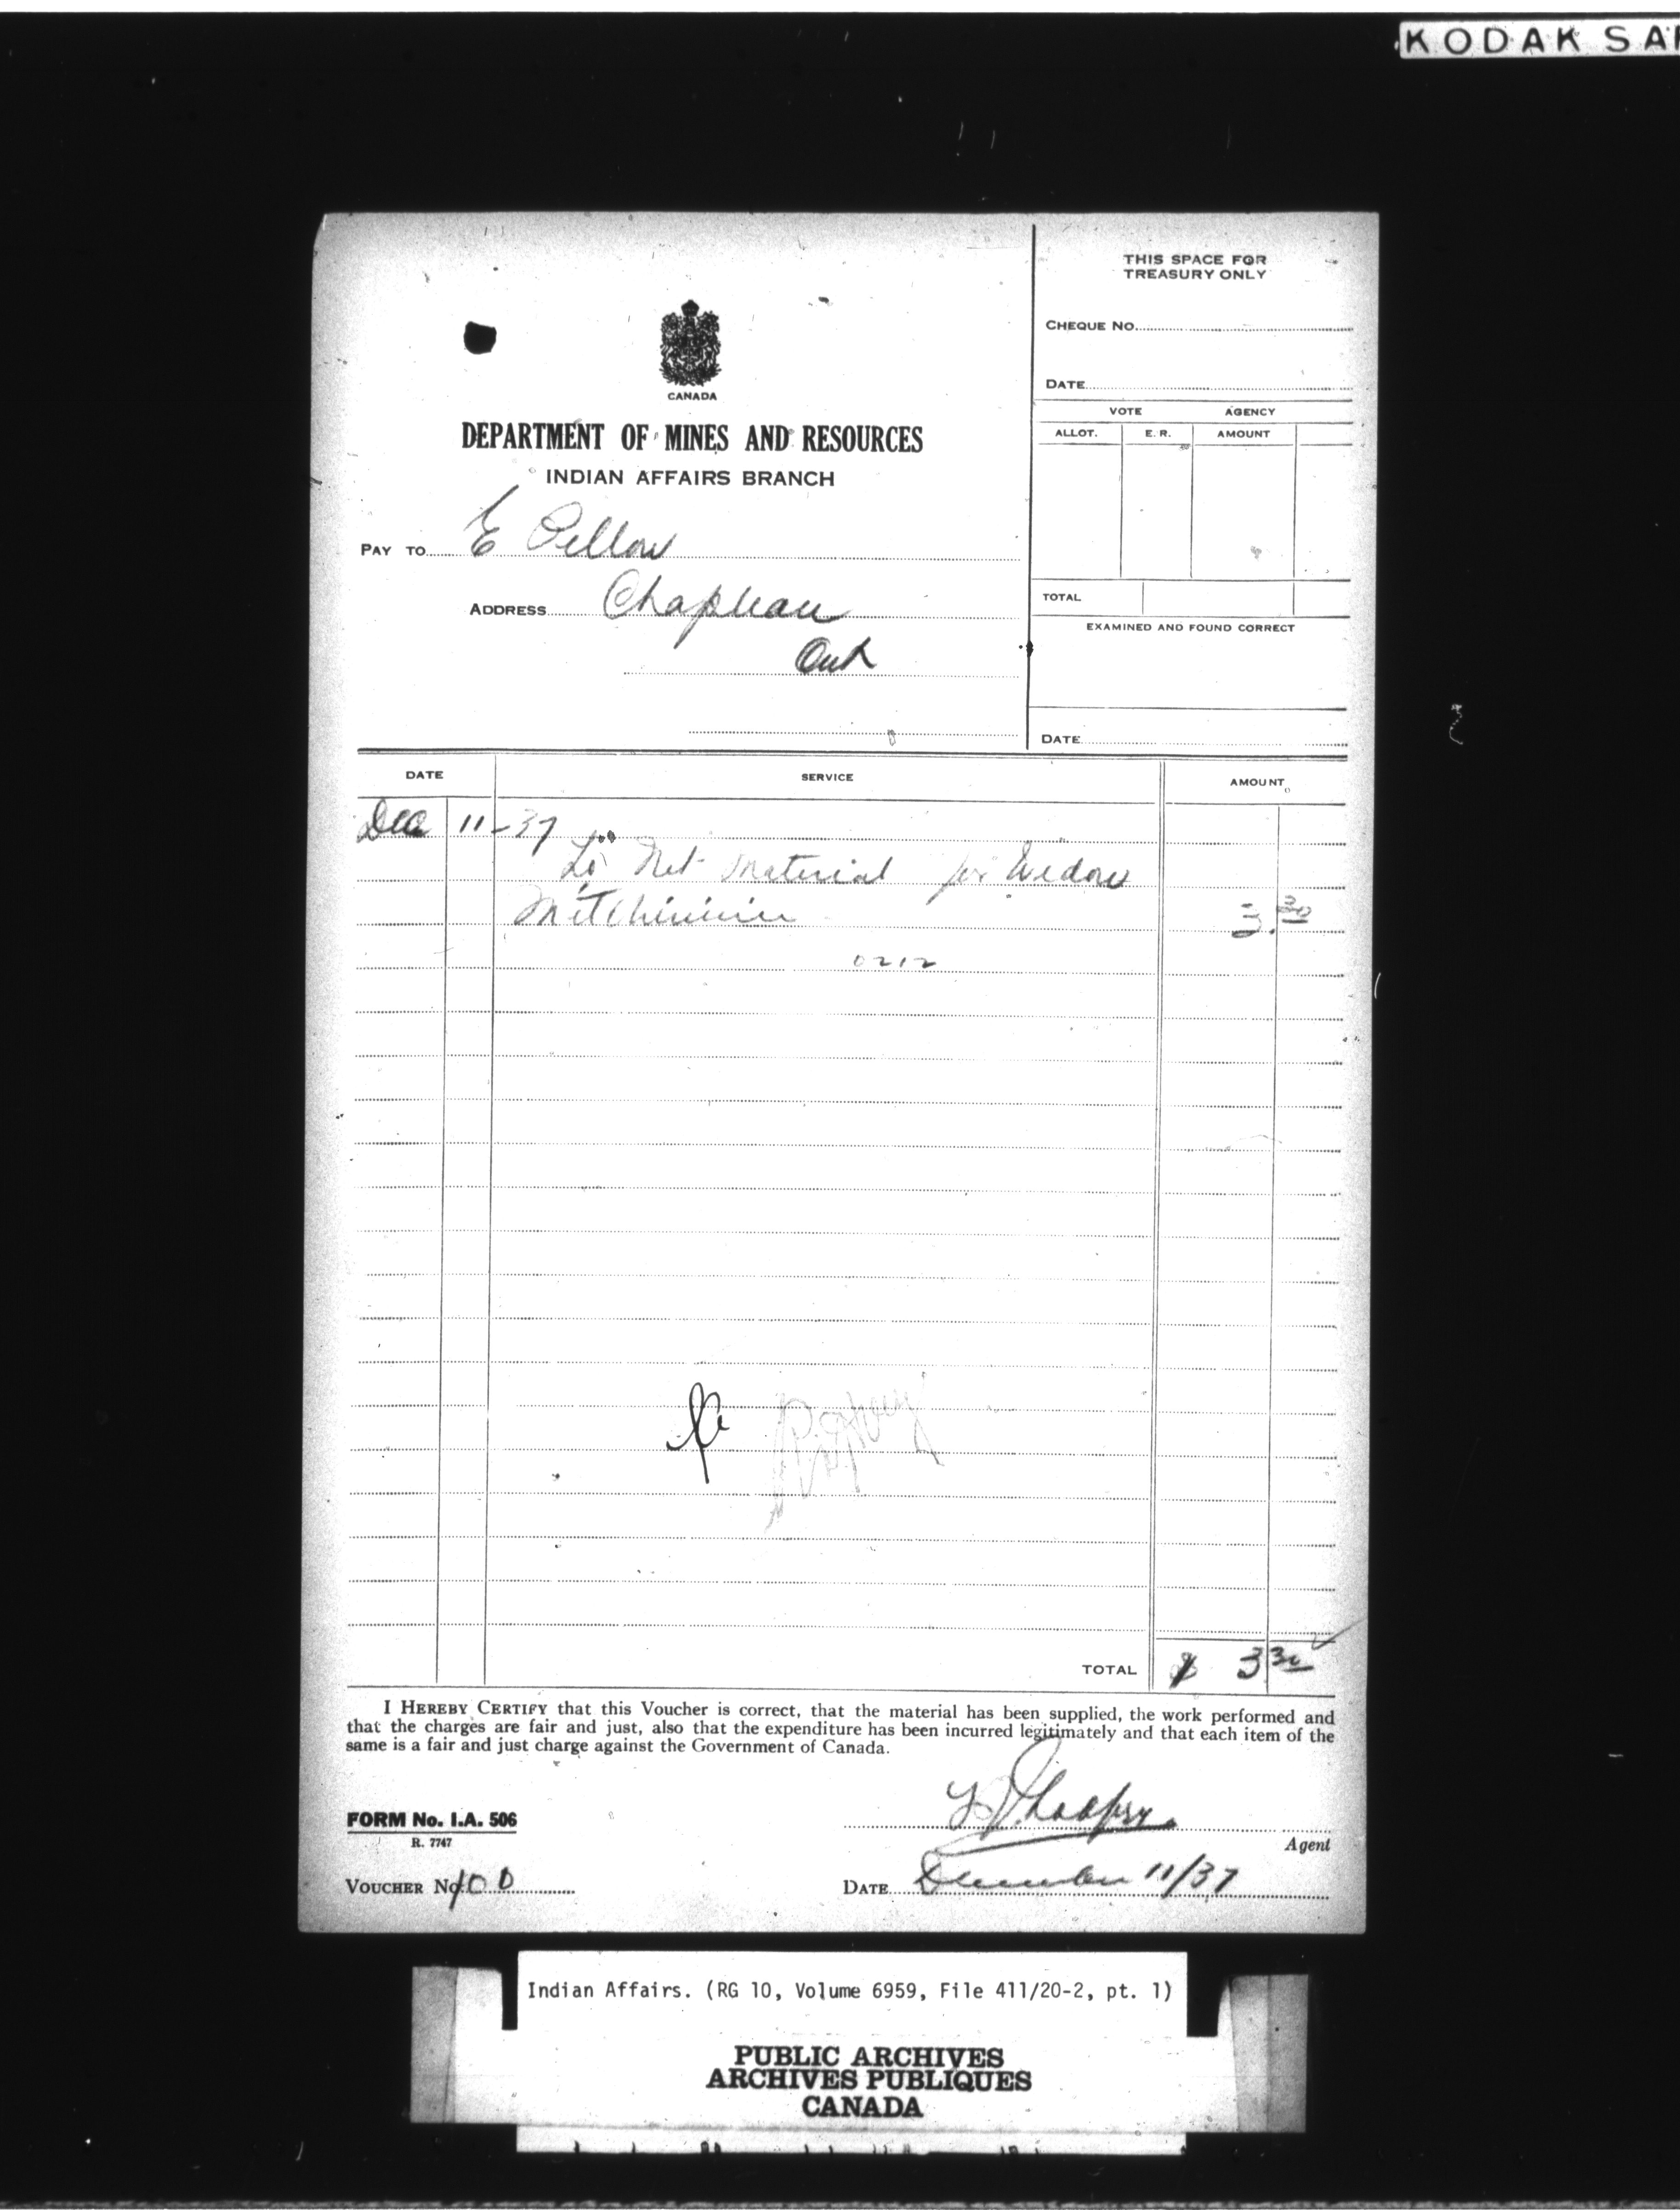 KODAK SA
THIS SPACE FOR
TREASURY ONLY
CHEQUE NO.
DATE
VOTE AGENCY
ALLOT. E.R. AMOUNT
TOTAL
EXAMINED AND FOUND CORRECT
DATE
CANADA
DEPARTMENT OF MINES AND RESOURCES
INDIAN AFFAIRS BRANCH
PAY TO E Pellow
ADDRESS Chapleau
Ont
DATE SERVICE AMOUNT
Dec 11-37
To Net Material for Widow
3.30
0212
TOTAL $ 3 30
I HEREBY CERTIFY that this Voucher is correct, that the material has been supplied, the work performed and
that the charges are fair and just, also that the expenditure has been incurred legitimately and that each item of the
same is a fair and just charge against the Government of Canada.
FORM No. I.A. 506
R. 7747
Agent
VOUCHER No. 100
DATE December 11/37
Indian Affairs. (RG 10, Volume 6959, File 411/20-2, pt. 1)
PUBLIC ARCHIVES
ARCHIVES PUBLIQUES
CANADA